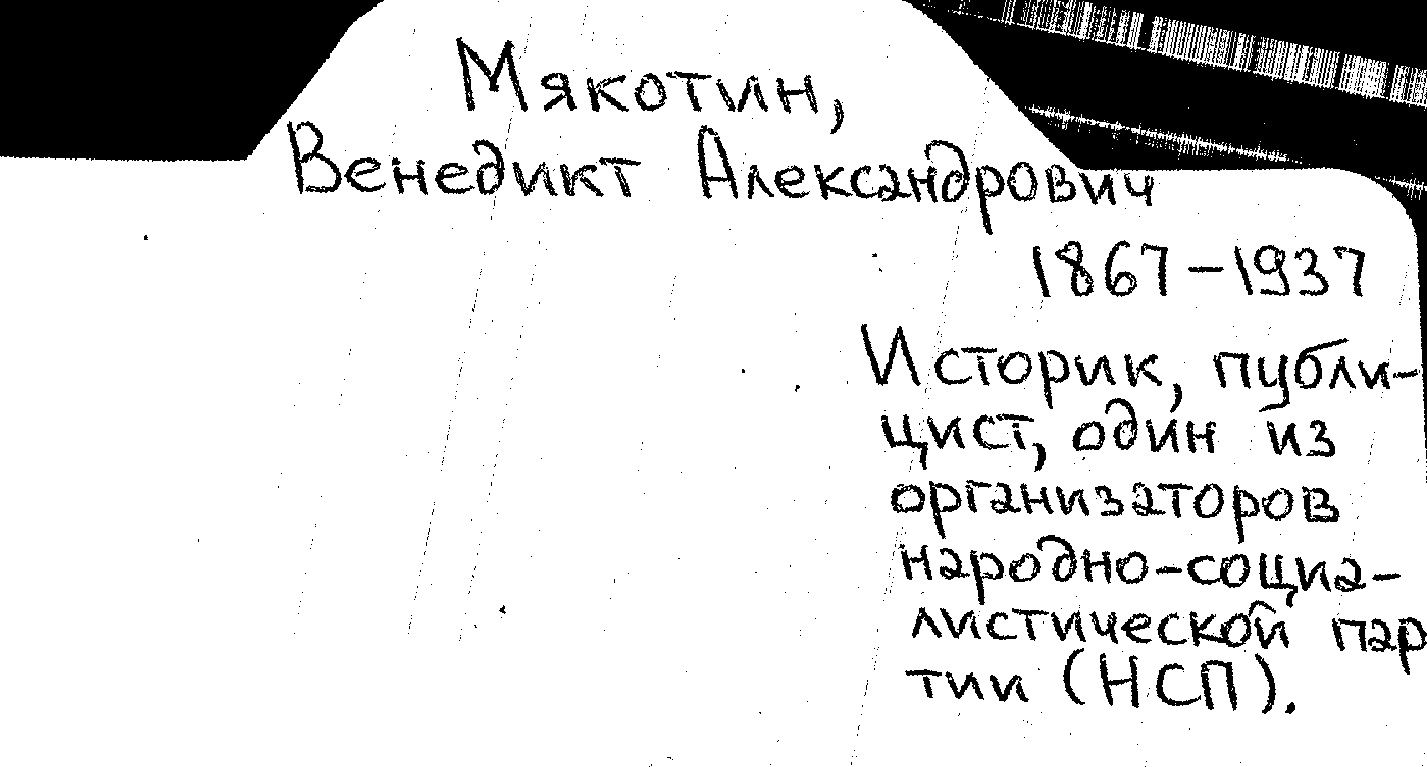 Мякотин,
Венедикт Александрович
1867-1937
Историк, публи-
цист, один из
организаторов
народно-социа-
листической пар
тии (НСП).